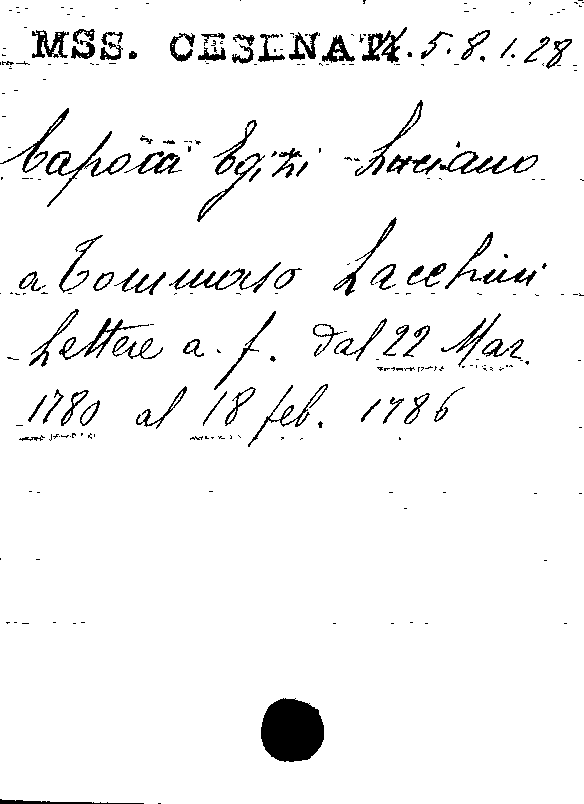 MSS. CESENATI. 5. 8. 1. 28
Capocci Egizi Luciano
a Tommaso Zacchini
Lettere a. f. dal 22 Mar.
1780 al 18 feb. 1786